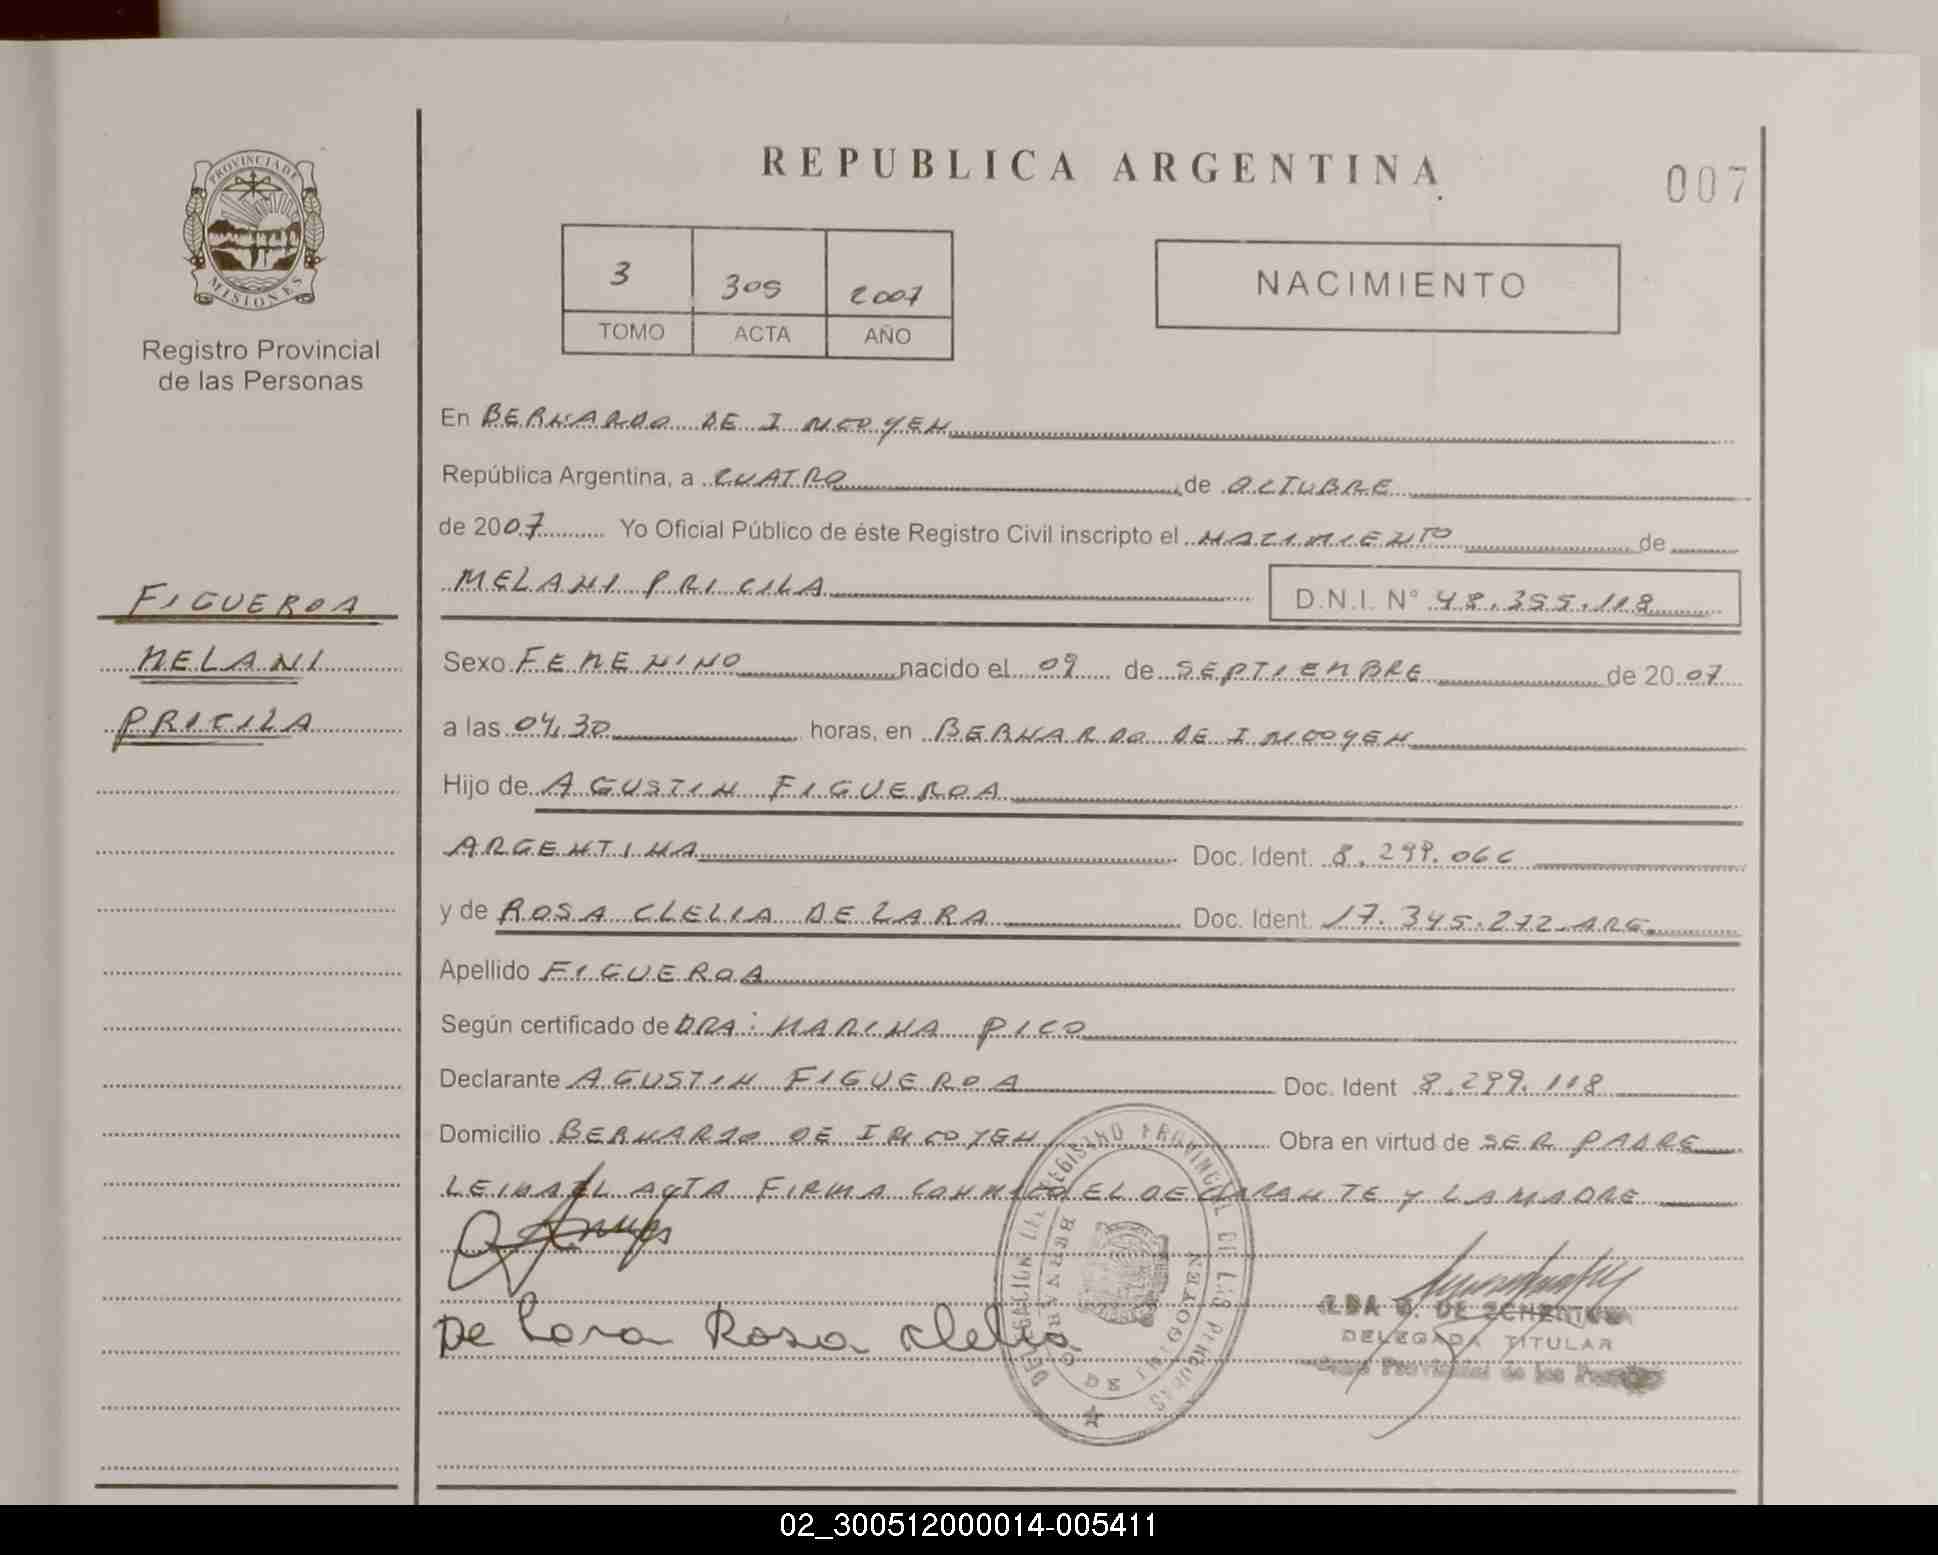 REPUBLICA ARGENTINA
007
PROVINCIA DE
MISIONES
Registro Provincial
de las Personas
3 305 2007
TOMO ACTA AÑO
NACIMIENTO
En BERNARDO DE IRIGOYEN
República Argentina, a CUATRO de OCTUBRE
de 2007 Yo Oficial Público de éste Registro Civil inscripto el NACIMIENTO de
MELANI PRICILA D.N.I. N° 48.355.118
FIGUEROA
MELANI
PRICILA
Sexo FEMENINO nacido el 09 de SEPTIEMBRE de 2007
a las 04,30 horas, en BERNARDO DE IRIGOYEN
Hijo de AGUSTIN FIGUEROA
ARGENTINA Doc. Ident. 8.299.066
y de ROSA CLELIA DE LARA Doc. Ident. 17.345.272.ARG.
Apellido FIGUEROA
Según certificado de DRA: MARINA PICO
Declarante AGUSTIN FIGUEROA Doc. Ident 8.299.118
Domicilio BERNARDO DE IRIGOYEN Obra en virtud de SER PADRE
LEIDA EL ACTA FIRMA CONMIGO EL DECLARANTE y LA MADRE
De Lara Rosa Clelia
DELEGACION DEL REGISTRO PROVINCIAL DE LAS PERSONAS
BERNARDO DE IRIGOYEN
DELEGADA TITULAR
Provincial de las
02_300512000014-005411